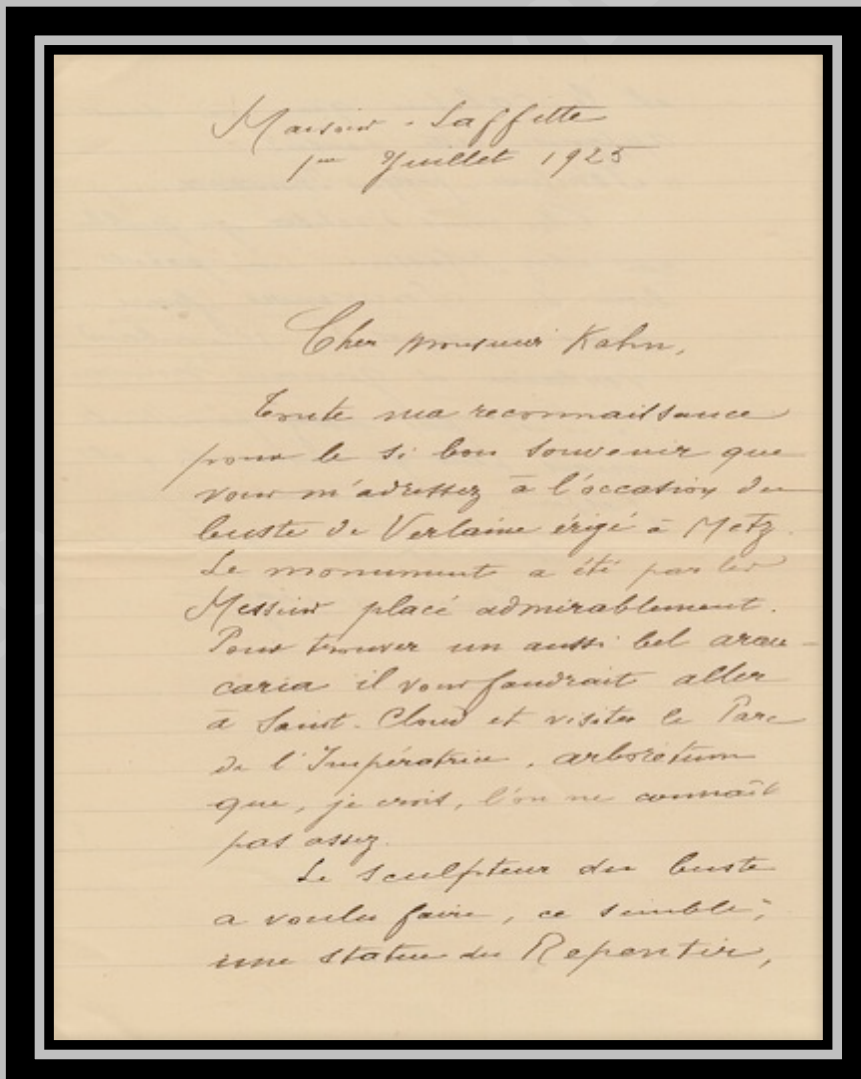 Maisons-Laffitte
1er Juillet 1925
Cher Monsieur Kahn,
Toute ma reconnaissance
pour le si bon souvenir que
vous m'adressez à l'occasion du
buste de Verlaine érigé à Metz.
Le monument a été par les
Messins placé admirablement.
Pour trouver un aussi bel arau-
caria il vous faudrait aller
à Saint-Cloud et visiter le Parc
de l'Impératrice, arboretum
que, je crois, l'on ne connaît
pas assez.
Le sculpteur du buste
a voulu faire, ce semble,
une statue du Repentir,